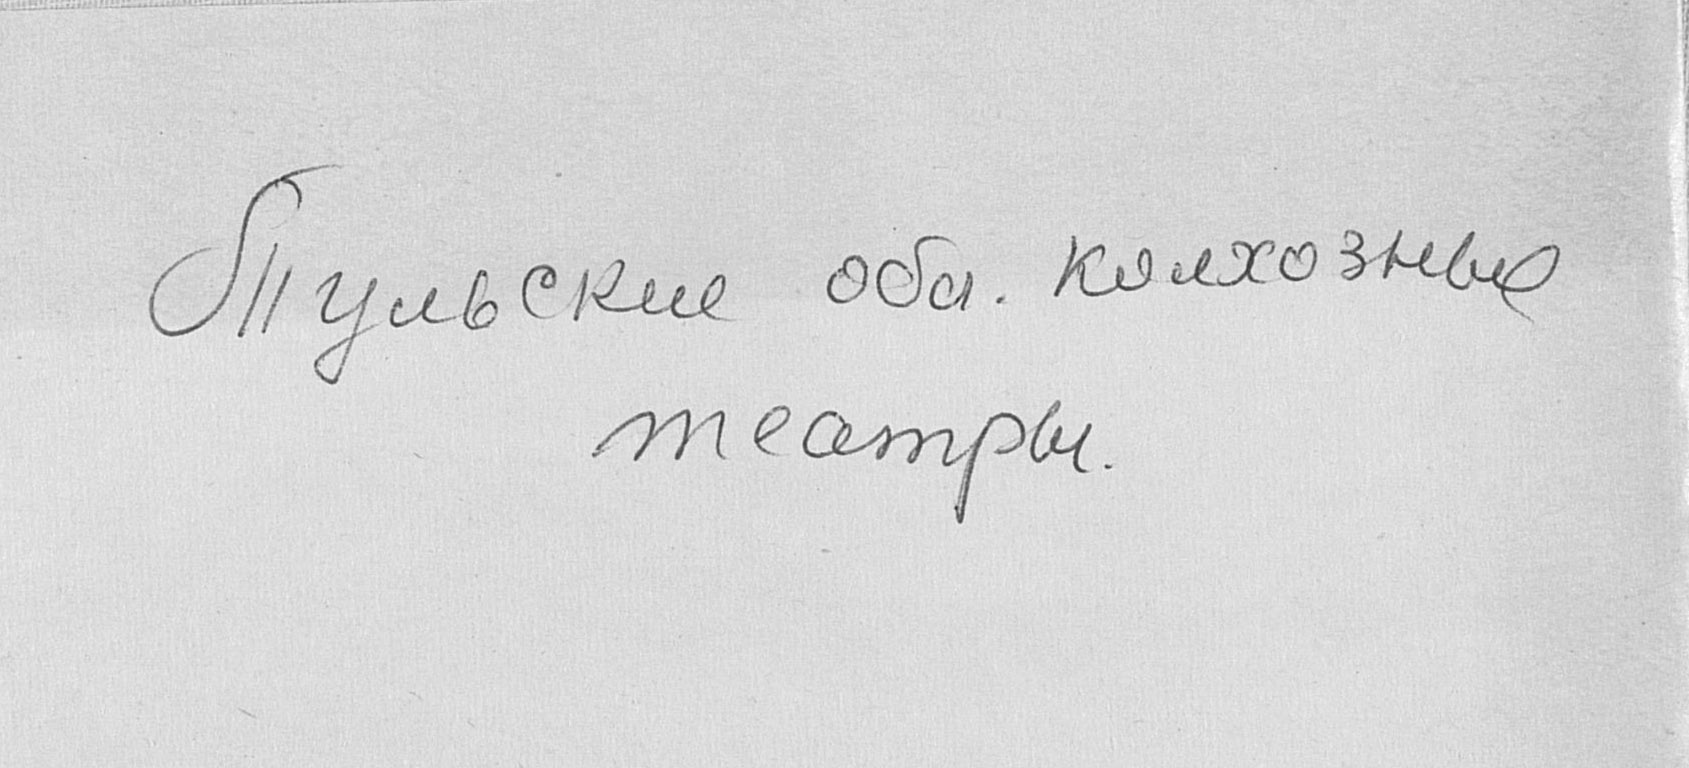 Тульские обл. колхозные
театры.